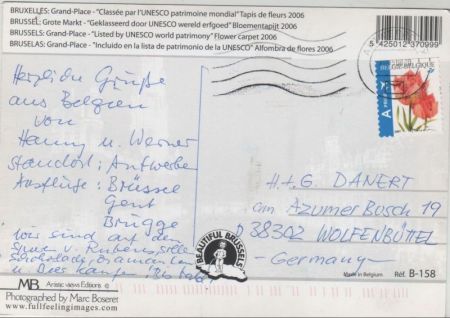 BRUXELLES: Grand-Place - "Classée par l'UNESCO patrimoine mondial" Tapis de fleurs 2006
BRUSSEL: Grote Markt - "Geklasseerd door UNESCO wereld erfgoed" Bloementapijt 2006
BRUSSELS: Grand-Place - "Listed by UNESCO world patrimony" Flower carpet 2006
BRUSELAS: Grand-Place - "Incluido en la lista de patrimonio de la UNESCO" Alfombra de flores 2006
5 425012 370999
BELGIQUE
A
Herzliche Grüße
aus Belgien
von
Hanny u. Werner
Standort: Antwerpen
Ausflüge: Brüssel
Gent
Brügge
Wir sind auf den
Spuren v. Rubens, Stille
Schokolade, Diamanten
u. Bier kaufen. Bis bald
H.+G. DANERT
am Azumer Bosch 19
D 38302 WOLFENBÜTTEL
- Germany -
BEAUTIFUL BRUSSELS
Made in Belgium
Réf. B-158
MB
Artistic views Editions ©
Photographed by Marc Boseret
www.fullfeelingimages.com